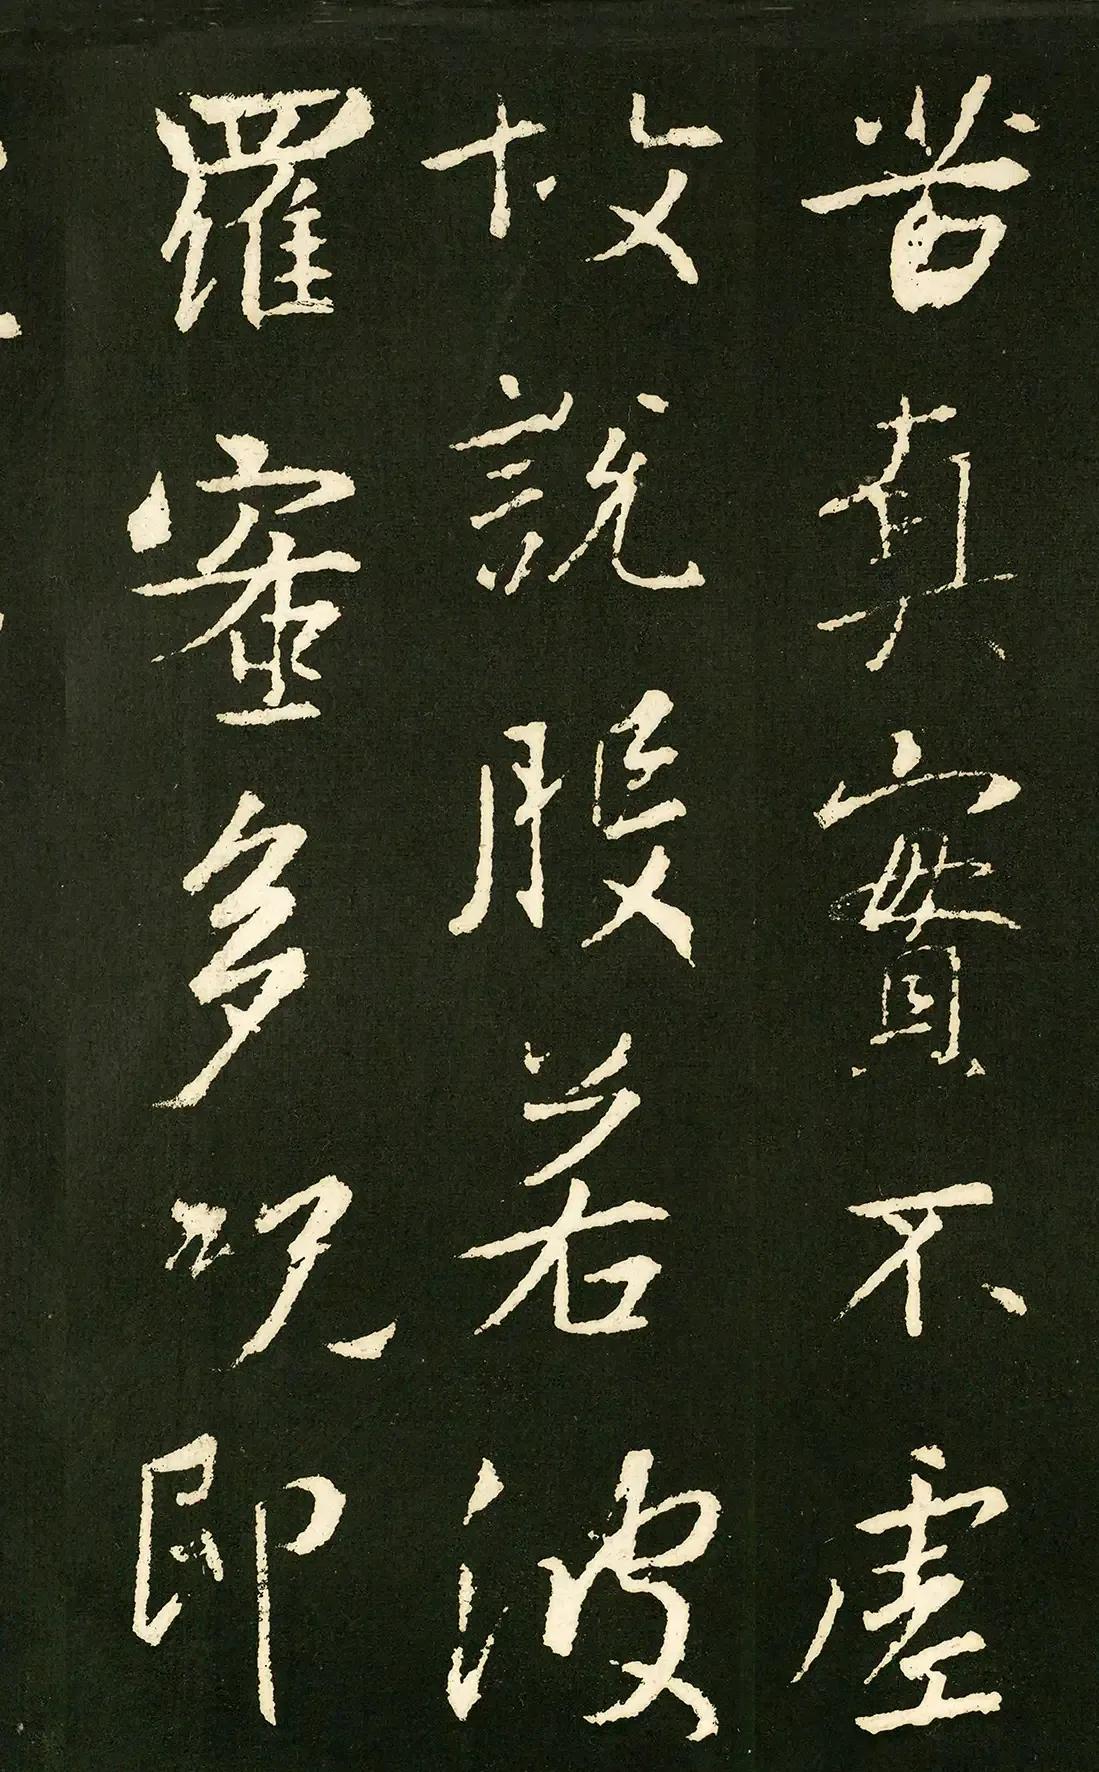 苦真實不虛
故說般若波
羅蜜多呪即